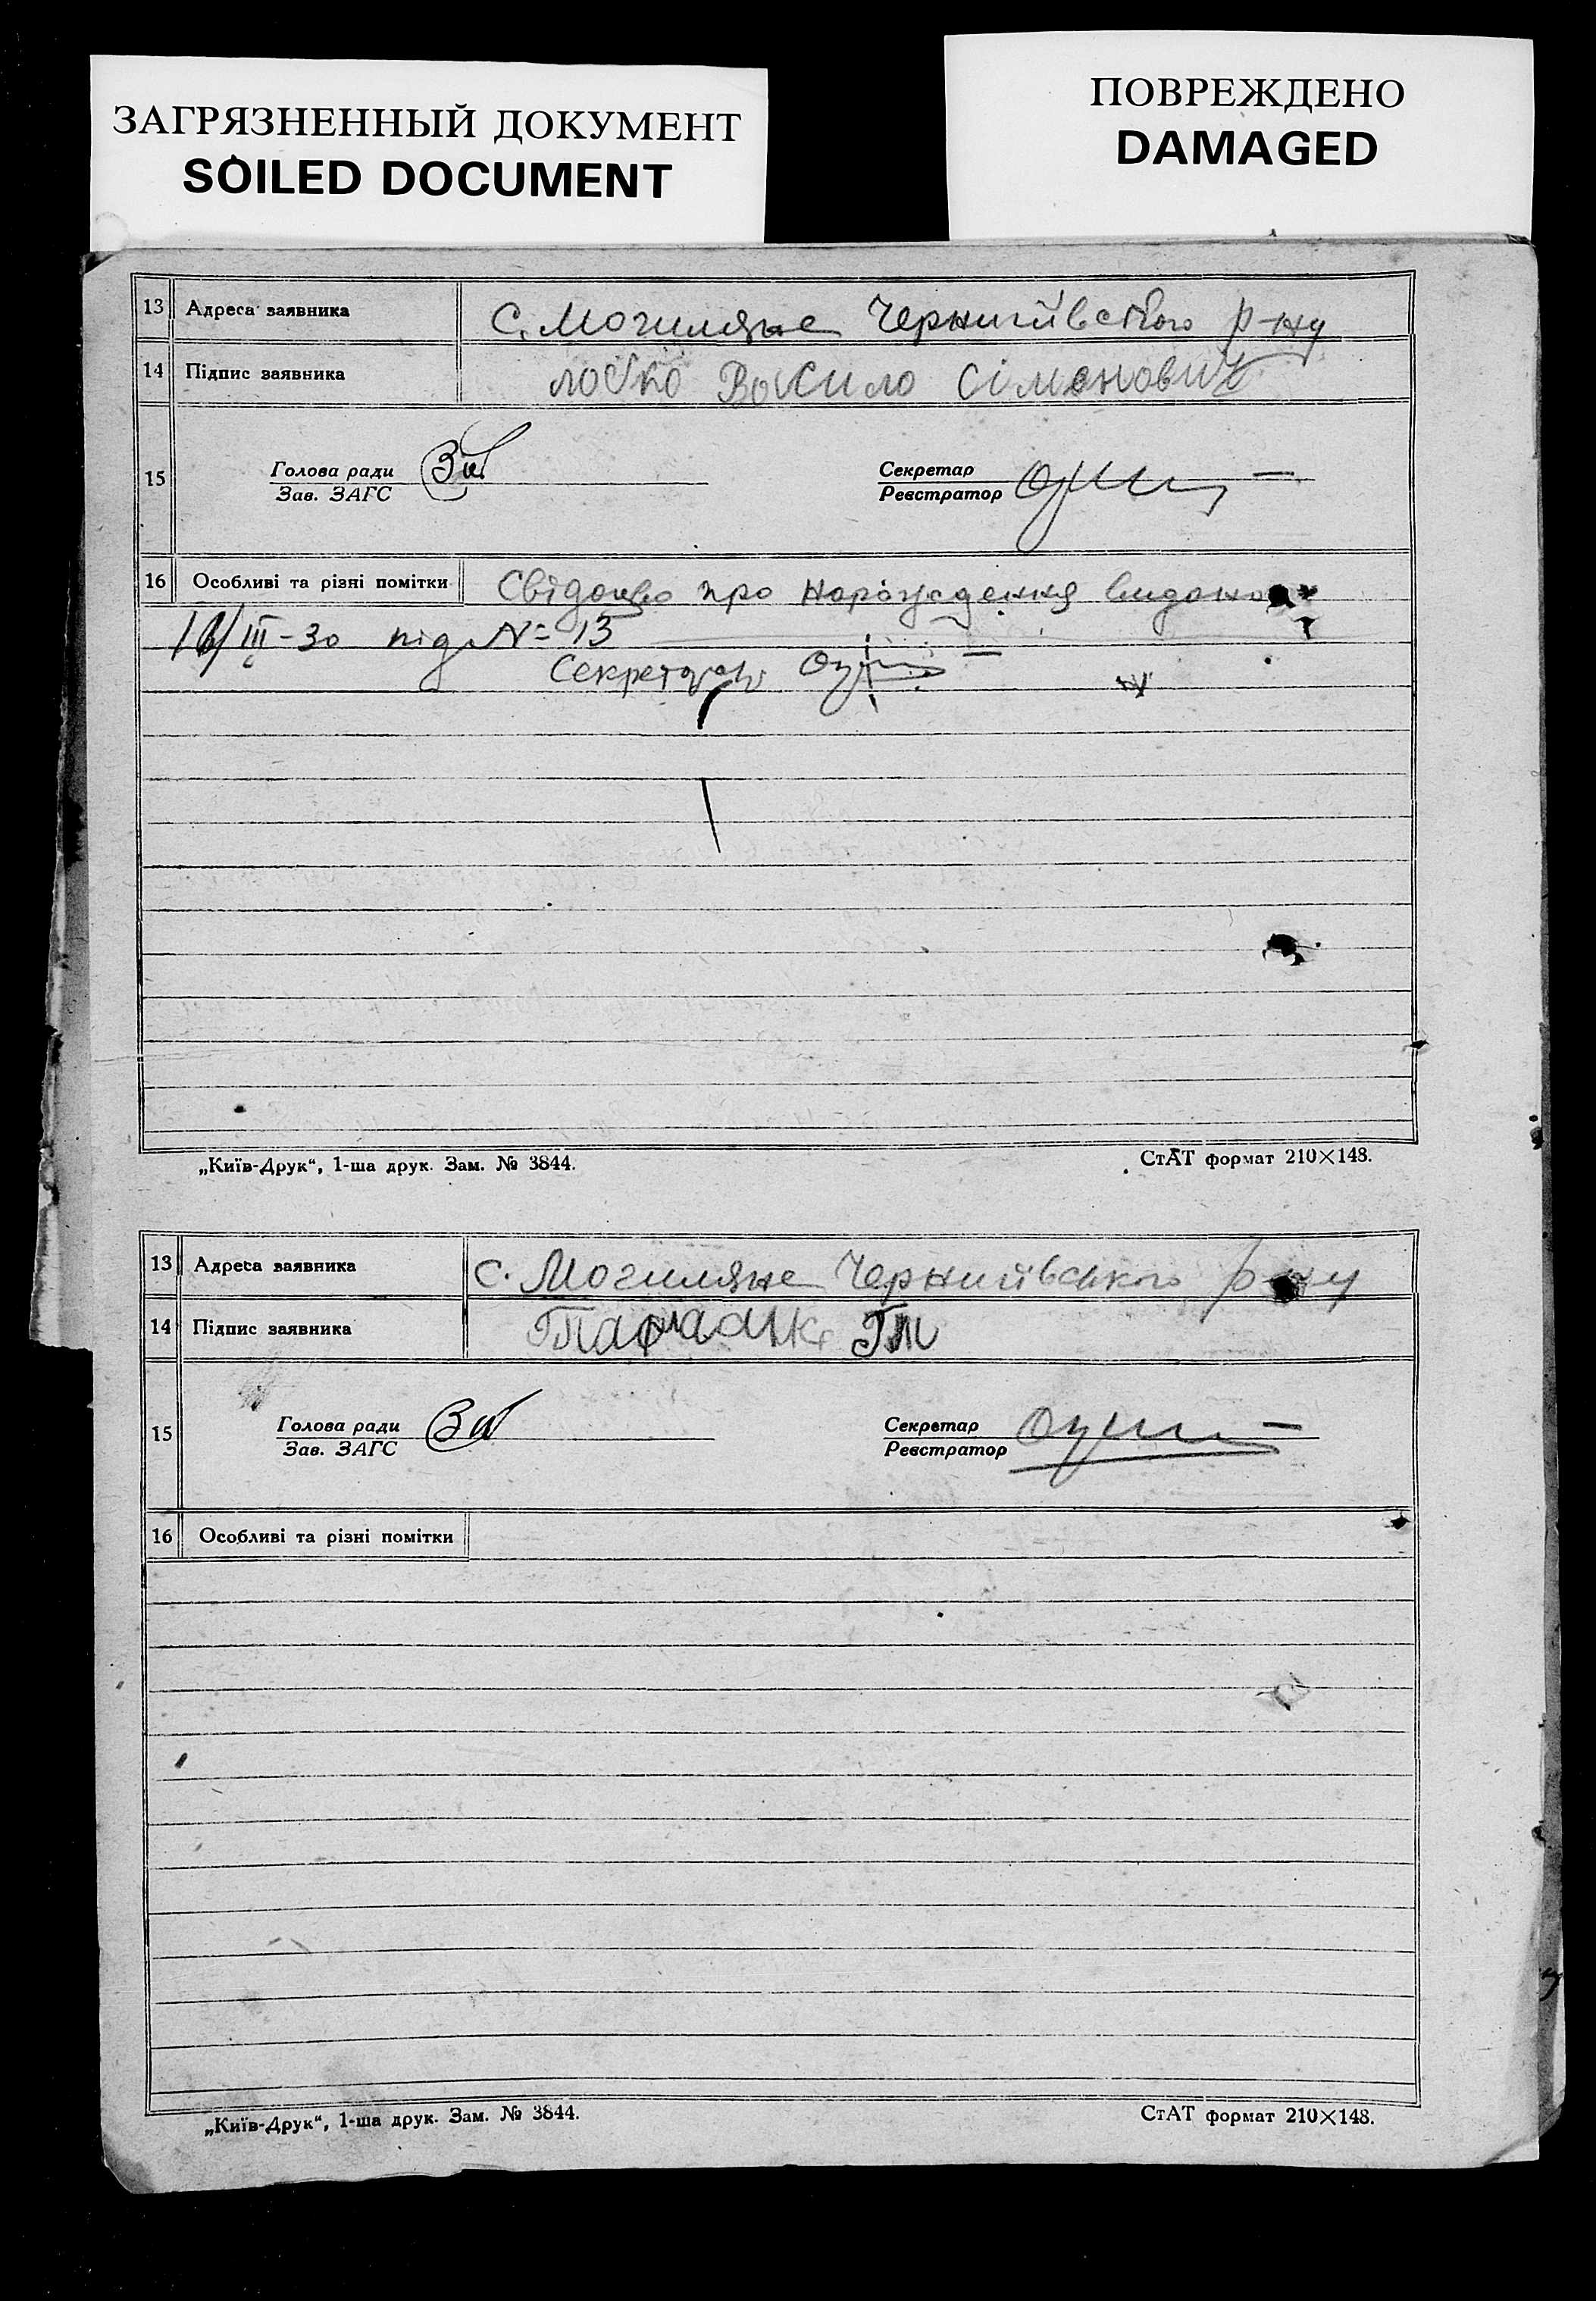 ЗАГРЯЗНЕННЫЙ ДОКУМЕНТ
SOILED DOCUMENT
ПОВРЕЖДЕНО
DAMAGED
13 Адреса заявника с. Могиляне Чернигівського р-ну
14 Підпис заявника Лобко Васило Сімонович
15 Голова ради
Зав. ЗАГС
Секретар
Реєстратор
16 Особливі та різні помітки Свідоцтво про народження видано
III-30 під № 13
Секретарь
„Київ-Друк“, 1-ша друк. Зам. № 3844.
СтАТ формат 210×148.
13 Адреса заявника с. Могиляне Чернигівського р-ну
14 Підпис заявника
15 Голова ради
Зав. ЗАГС
Секретар
Реєстратор
16 Особливі та різні помітки
„Київ-Друк“, 1-ша друк. Зам. № 3844.
СтАТ формат 210×148.